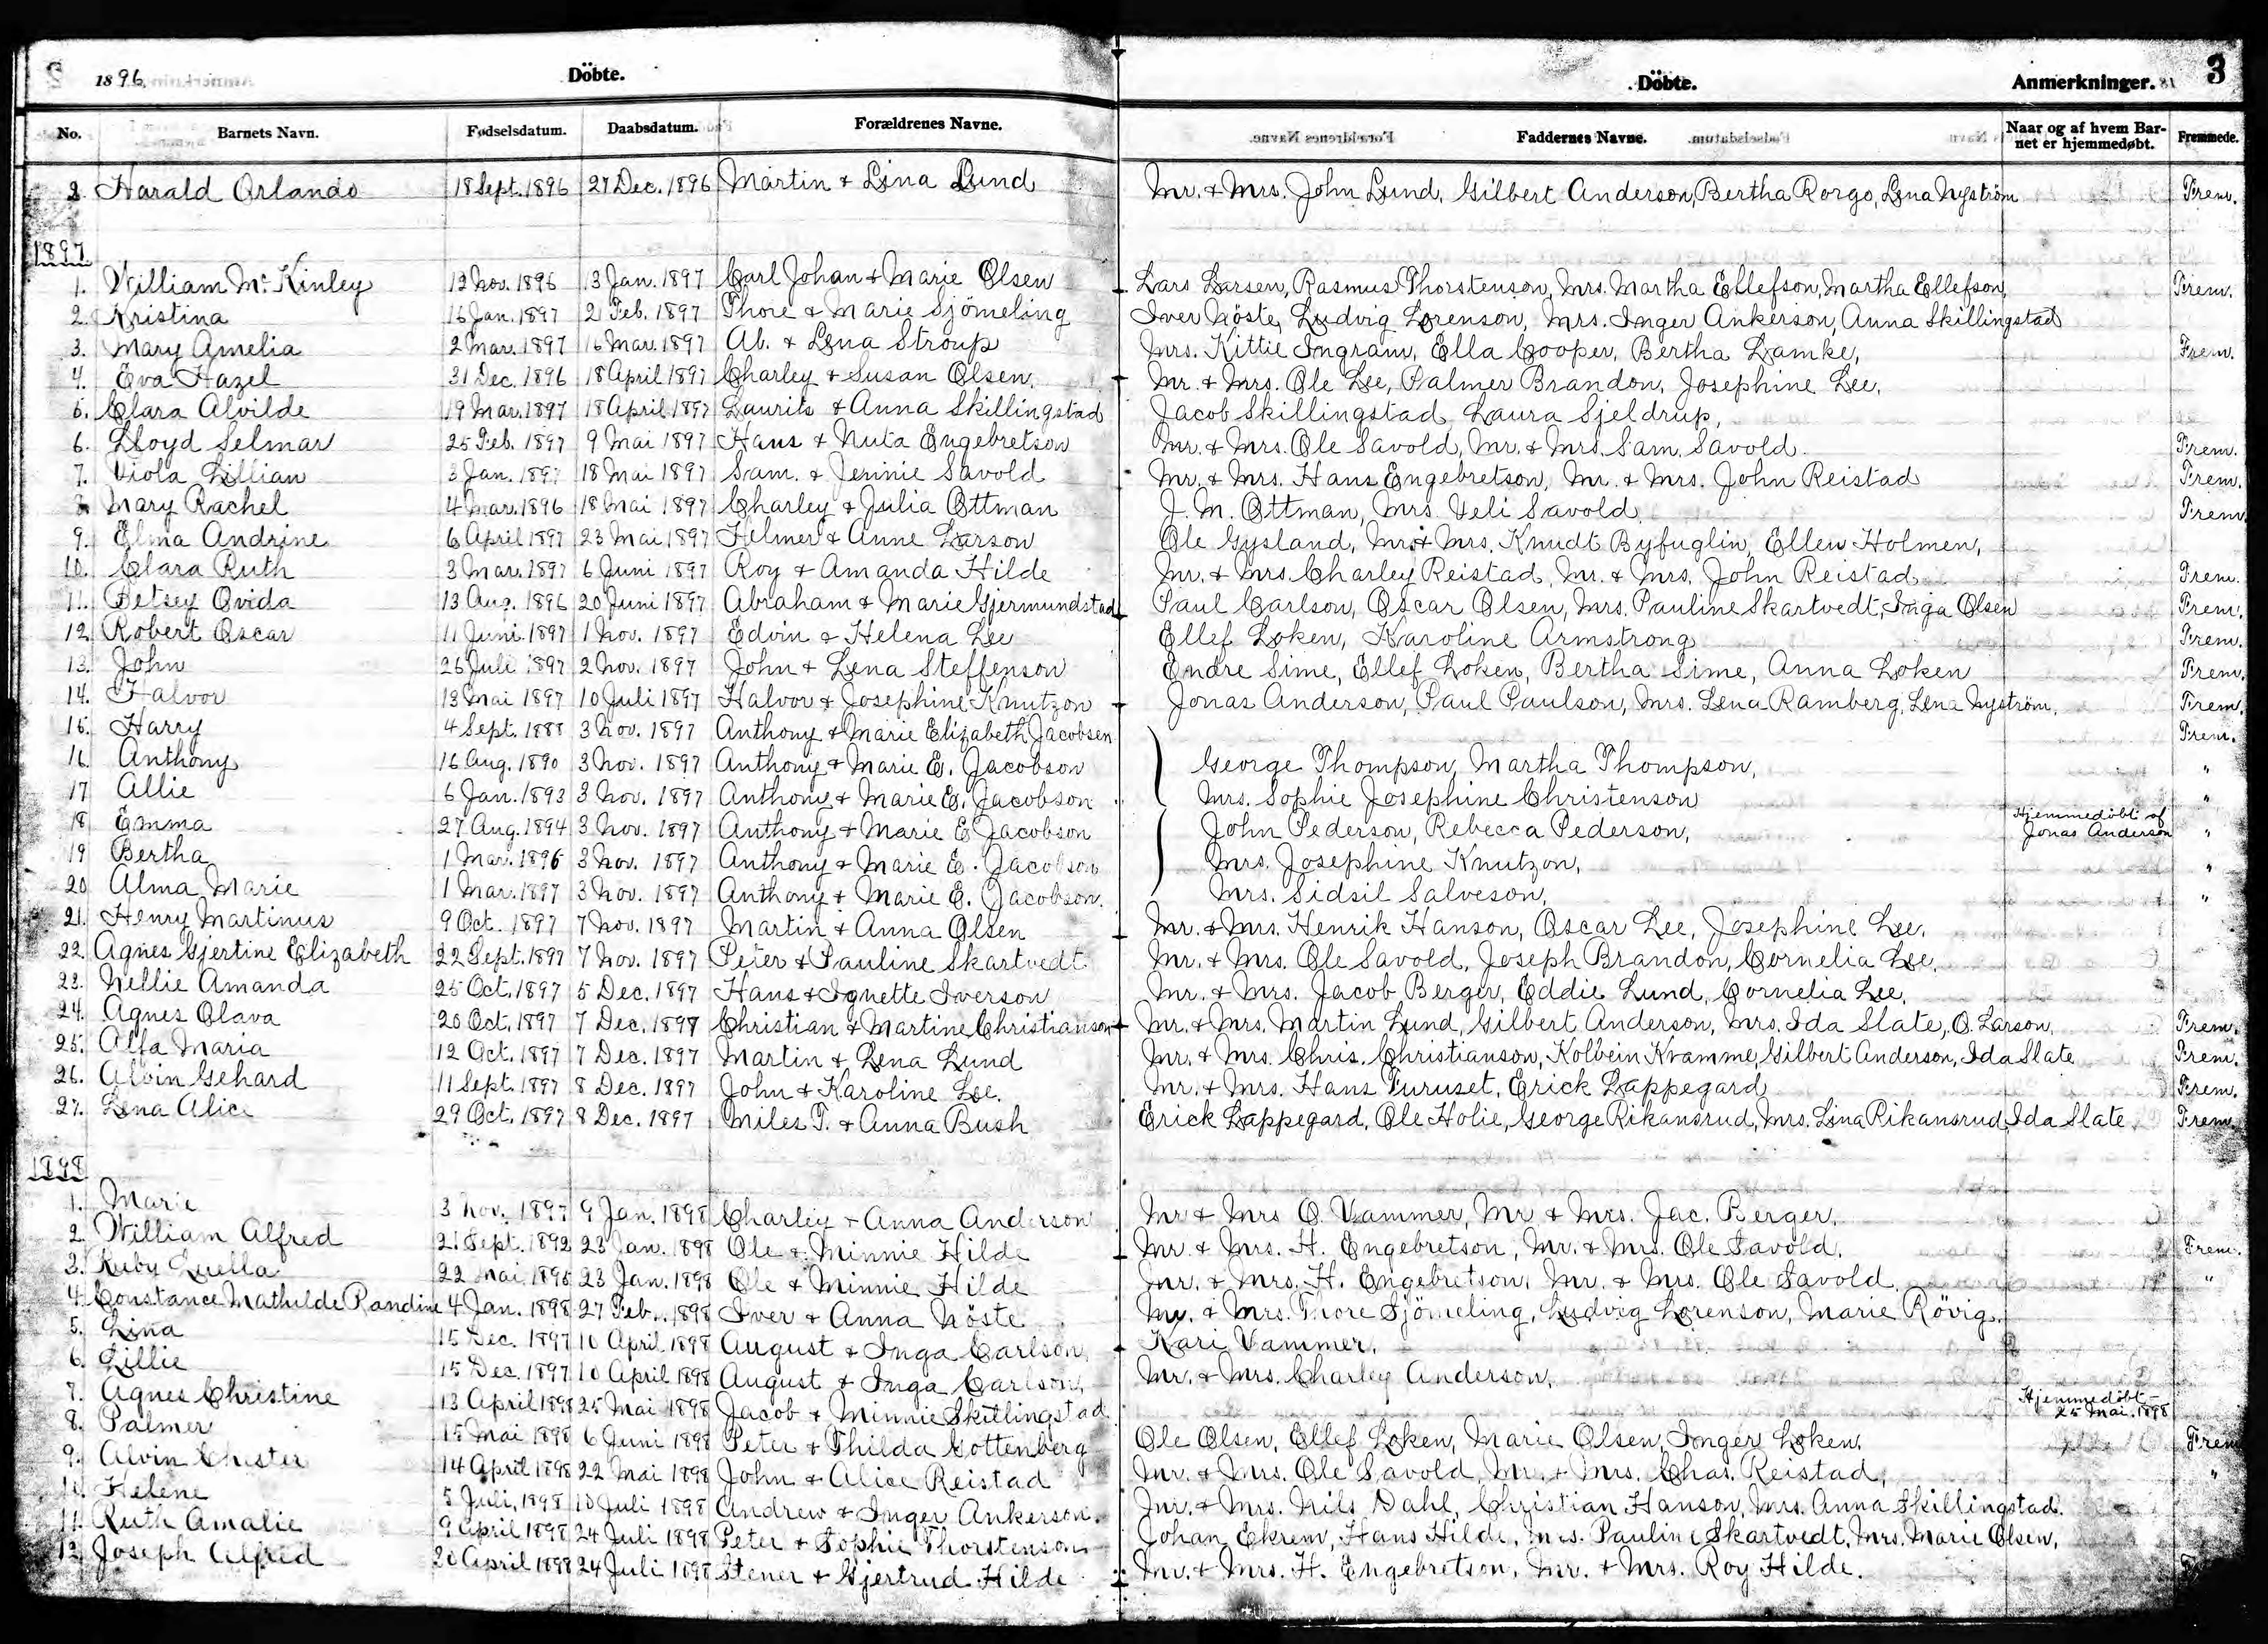 1896. Döbte. Döbte. Anmerkninger. 3
No. Barnets Navn. Fødselsdatum. Daabsdatum. Forældrenes Navne. Faddernes Navne. Naar og af hvem Bar-net er hjemmedøbt. Fremmede.
2. Harald Orlando 18 Sept. 1896 27 Dec. 1896 Martin & Lina Lund Mr. & Mrs. John Lund, Gilbert Anderson, Bertha Rorgo, Lena Nyström Frem.
1897
1. William Mc Kinley 12 Nov. 1896 13 Jan. 1897 Carl Johan & Marie Olsen Lars Larsen, Rasmus Thorstenson, Mrs. Martha Ellefson, Martha Ellefson, Frem.
2. Kristina 16 Jan. 1897 2 Feb. 1897 Thore & Marie Sjömeling Iver Nöste, Ludvig Lorenson, Mrs. Inger Ankerson, Anna Skillingstad
3. Mary Amelia 2 Mar. 1897 16 Mar. 1897 Ab. & Lena Stroup Mrs. Kittie Ingram, Ella Cooper, Bertha Lamke, Frem.
4. Eva Hazel 31 Dec. 1896 18 April 1897 Charley & Susan Olsen. Mr. & Mrs. Ole Lee, Palmer Brandon, Josephine Lee,
5. Clara Alvilde 19 Mar. 1897 18 April 1897 Laurits & Anna Skillingstad Jacob Skillingstad, Laura Sjeldrup,
6. Lloyd Selmar 25 Feb. 1897 9 Mai 1897 Hans & Nuta Engebretson Mr. & Mrs. Ole Savold, Mr. & Mrs. Sam. Savold. Frem.
7. Viola Lillian 3 Jan. 1897 18 Mai 1897 Sam. & Jennie Savold Mr. & Mrs. Hans Engebretson, Mr. & Mrs. John Reistad Frem.
8. Mary Rachel 4 Mar. 1896 18 Mai 1897 Charley & Julia Ottman J. M. Ottman, Mrs. Veli Savold. Frem.
9. Elma Andrine 6 April 1897 23 Mai 1897 Helmer & Anne Larson Ole Gysland, Mr. & Mrs. Knudt Byfuglin, Ellen Holmen,
10. Clara Ruth 3 Mar. 1897 6 Juni 1897 Roy & Amanda Hilde Mr. & Mrs. Charley Reistad, Mr. & Mrs. John Reistad Frem.
11. Betsey Ovida 13 Aug. 1896 20 Juni 1897 Abraham & Marie Gjermundstad Paul Carlson, Oscar Olsen, Mrs. Pauline Skartvedt, Inga Olsen Frem.
12. Robert Oscar 11 Juni 1897 1 Nov. 1897 Edvin & Helena Lee Ellef Loken, Karoline Armstrong Frem.
13. John 26 Juli 1897 2 Nov. 1897 John & Lena Steffenson Endre Sime, Ellef Loken, Bertha Sime, Anna Loken Frem.
14. Halvor 13 Mai 1897 10 Juli 1897 Halvor & Josephine Knutzon Jonas Anderson, Paul Paulson, Mrs. Lena Ramberg, Lena Nyström, Frem.
15. Harry 4 Sept. 1888 3 Nov. 1897 Anthony & Marie Elizabeth Jacobsen Frem.
16. Anthony 16 Aug. 1890 3 Nov. 1897 Anthony & Marie E. Jacobson George Thompson, Martha Thompson, "
17 Allie 6 Jan. 1893 3 Nov. 1897 Anthony & Marie E. Jacobson Mrs. Sophie Josephine Christenson "
18 Emma 27 Aug. 1894 3 Nov. 1897 Anthony & Marie E. Jacobson John Pederson, Rebecca Pederson, Hjemmedöbt af Jonas Anderson "
19 Bertha 1 Mar. 1896 3 Nov. 1897 Anthony & Marie E. Jacobson Mrs. Josephine Knutzon, "
20 Alma Marie 1 Mar. 1897 3 Nov. 1897 Anthony & Marie E. Jacobson. Mrs. Sidsil Salveson, "
21. Henry Martinus 9 Oct. 1897 7 Nov. 1897 Martin & Anna Olsen Mr. & Mrs. Henrik Hanson, Oscar Lee, Josephine Lee,
22. Agnes Gjertine Elizabeth 22 Sept. 1897 7 Nov. 1897 Peter & Pauline Skartvedt Mr. & Mrs. Ole Savold, Joseph Brandon, Cornelia Lee,
23. Nellie Amanda 25 Oct. 1897 5 Dec. 1897 Hans & Ignette Iverson Mr. & Mrs. Jacob Berger, Eddie Lund, Cornelia Lee,
24. Agnes Olava 20 Oct. 1897 7 Dec. 1897 Christian & Martine Christianson Mr. & Mrs. Martin Lund, Gilbert Anderson, Mrs. Ida Slate, O. Larson. Frem.
25. Alfa Maria 12 Oct. 1897 7 Dec. 1897 Martin & Lena Lund Mr. & Mrs. Chris. Christianson, Kolbein Kvamme, Gilbert Anderson, Ida Slate Frem.
26. Alvin Gehard 11 Sept. 1897 8 Dec. 1897 John & Karoline Lee. Mr. & Mrs. Hans Furuset, Erick Lappegard Frem.
27. Lena Alice 29 Oct. 1897 8 Dec. 1897 Miles T. & Anna Bush Erick Lappegard, Ole Holie, George Rikansrud, Mrs. Lina Rikansrud, Ida Slate Frem.
1898
1. Marie 3 Nov. 1897 9 Jan. 1898 Charley & Anna Anderson Mr & Mrs O. Vammer, Mr & Mrs. Jac. Berger.
2. William Alfred 21 Sept. 1892 23 Jan. 1898 Ole & Minnie Hilde Mr. & Mrs. H. Engebretson, Mr. & Mrs. Ole Savold. Frem.
3. Ruby Luella 22 Mai 1895 23 Jan. 1898 Ole & Minnie Hilde Mr. & Mrs. H. Engebretson, Mr. & Mrs. Ole Savold. "
4. Constance Mathilde Randine 4 Jan. 1898 27 Feb. 1898 Iver & Anna Nöste Mr. & Mrs. Thore Sjömeling, Ludvig Lorenson, Marie Rövig.
5. Lina 15 Dec. 1897 10 April 1898 August & Inga Carlson, Kari Vammer,
6. Lillie 15 Dec. 1897 10 April 1898 August & Inga Carlson, Mr. & Mrs. Charley Anderson,
7. Agnes Christine 13 April 1898 25 Mai 1898 Jacob & Minnie Skillingstad Hjemmedöbt – 25 Mai. 1898
8. Palmer 15 Mai 1898 6 Juni 1898 Peter & Thilda Gottenberg Ole Olsen, Ellef Loken, Marie Olsen, Inger Loken. Frem
9. Alvin Chester 14 April 1898 22 Mai 1898 John & Alice Reistad Mr. & Mrs. Ole Savold, Mr. & Mrs. Chas. Reistad, "
10. Helene 5 Juli, 1898 10 Juli 1898 Andrew & Inger Ankerson. Mr. & Mrs. Nils Dahl, Christian Hanson, Mrs. Anna Skillingstad.
11. Ruth Amalie 9 April 1898 24 Juli 1898 Peter & Sophie Thorstenson Johan Ekrem, Hans Hilde, Mrs. Pauline Skartvedt, Mrs. Marie Olsen,
12. Joseph Alfred 20 April 1898 24 Juli 1898 Stener & Gjertrud Hilde Mr. & Mrs. H. Engebretson, Mr. & Mrs. Roy Hilde.